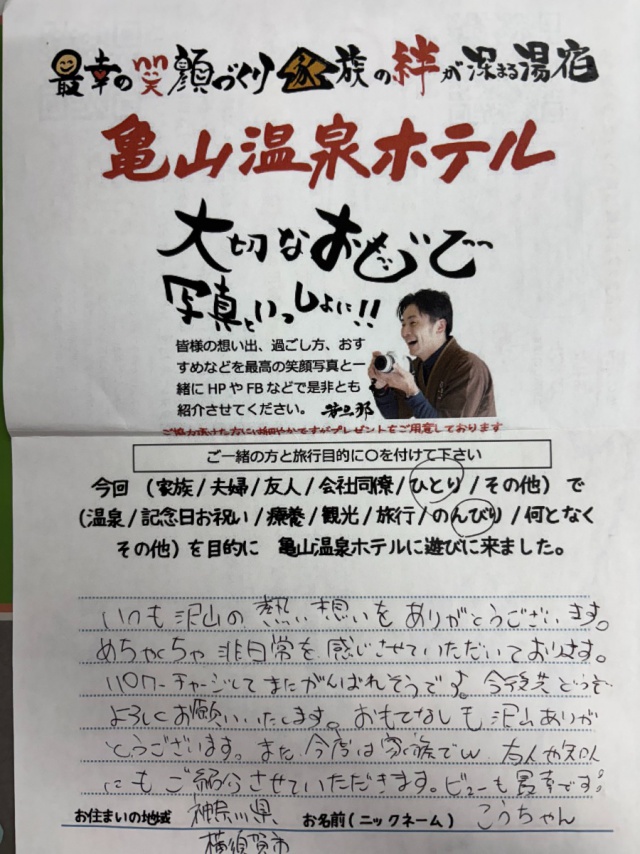 最幸の笑顔づくり 家族の絆が深まる湯宿
亀山温泉ホテル
大切なおもいで
写真といっしょに!!
皆様の想い出、過ごし方、おす
すめなどを最高の笑顔写真と一
緒にHPやFBなどで是非とも
紹介させてください。 若旦那
ご協力頂けた方には細やかですがプレゼントをご用意しております
ご一緒の方と旅行目的に〇を付けて下さい
今回（家族/夫婦/友人/会社同僚/ひとり/その他）で
（温泉/記念日お祝い/療養/観光/旅行/のんびり/何となく
その他）を目的に 亀山温泉ホテルに遊びに来ました。
いつも沢山の熱い想いをありがとうございます。
めちゃくちゃ非日常を感じさせていただいております。
パワーチャージしてまたがんばれそうです♪ 今後共どうぞ
よろしくお願いいたします。おもてなしも沢山ありが
とうございます。また今度は家族でw 友人や知人
にもご紹介させていただきます。ビューも最幸です!
お住まいの地域 神奈川県 お名前(ニックネーム) こうちゃん
横須賀市